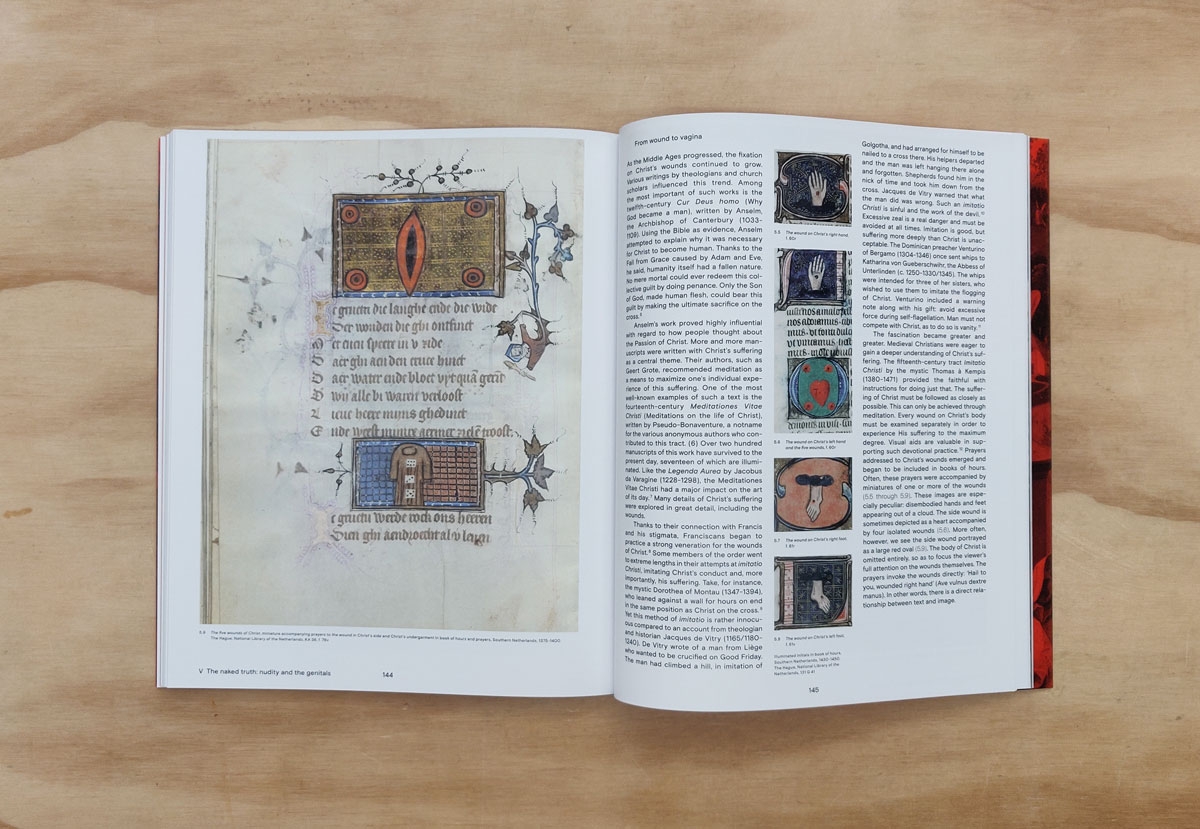 e gruetu die langhe ende die wide
Der wonden die ghi ontfinct
aer ghi aen den cruce hinct
aer water ende bloet
wi alle bi waren verloost
5.9 The five wounds of Christ, miniature accompanying prayers to the wound in Christ's side and Christ's undergarment in book of hours and prayers, Southern Netherlands, 1375-1400.
The Hague, National Library of the Netherlands,
V The naked truth: nudity and the genitals
144
From wound to vagina
As the Middle Ages progressed, the fixation
on Christ's wounds continued to grow.
Various writings by theologians and church
scholars influenced this trend. Among
the most important of such works is the
twelfth-century Cur Deus homo (Why
God became a man), written by Anselm,
the Archbishop of Canterbury (1033-
1109). Using the Bible as evidence, Anselm
attempted to explain why it was necessary
for Christ to become human. Thanks to the
Fall from Grace caused by Adam and Eve,
he said, humanity itself had a fallen nature.
No mere mortal could ever redeem this col-
lective guilt by doing penance. Only the Son
of God, made human flesh, could bear this
guilt by making the ultimate sacrifice on the
cross.
Anselm's work proved highly influential
with regard to how people thought about
the Passion of Christ. More and more man-
uscripts were written with Christ's suffering
as a central theme. Their authors, such as
Geert Grote, recommended meditation as
a means to maximize one's individual expe-
rience of this suffering. One of the most
well-known examples of such a text is the
fourteenth-century Meditationes Vitae
Christi (Meditations on the life of Christ),
written by Pseudo-Bonaventure, a notname
for the various anonymous authors who con-
tributed to this tract. (6) Over two hundred
manuscripts of this work have survived to the
present day, seventeen of which are illumi-
nated. Like the Legenda Aurea by Jacobus
da Varagine (1228-1298), the Meditationes
Vitae Christi had a major impact on the art
of its day.7 Many details of Christ's suffering
were explored in great detail, including the
wounds.
Thanks to their connection with Francis
and his stigmata, Franciscans began to
practice a strong veneration for the wounds
of Christ.8 Some members of the order went
to extreme lengths in their attempts at imitatio
Christi, imitating Christ's conduct and, more
importantly, his suffering. Take, for instance,
the mystic Dorothea of Montau (1347-1394),
who leaned against a wall for hours on end
in the same position as Christ on the cross.9
Yet this method of imitatio is rather innocu-
ous compared to an account from theologian
and historian Jacques de Vitry (1165/1180-
1240). De Vitry wrote of a man from Liège
who wanted to be crucified on Good Friday.
The man had climbed a hill, in imitation of
5.5 The wound on Christ's right hand,
f. 60r
5.6 The wound on Christ's left hand
and the five wounds, f. 60v
5.7 The wound on Christ's right foot,
f. 61r
5.8 The wound on Christ's left foot,
f. 61v
Illuminated initials in book of hours,
Southern Netherlands, 1430-1450.
The Hague, National Library of the
Netherlands, 131 G 4
Golgotha, and had arranged for himself to be
nailed to a cross there. His helpers departed
and the man was left hanging there alone
and forgotten. Shepherds found him in the
nick of time and took him down from the
cross. Jacques de Vitry warned that what
the man did was wrong. Such an imitatio
Christi is sinful and the work of the devil.10
Excessive zeal is a real danger and must be
avoided at all times. Imitation is good, but
suffering more deeply than Christ is unac-
ceptable. The Dominican preacher Venturino
of Bergamo (1304-1346) once sent whips to
Katharina von Gueberschwihr, the Abbess of
Unterlinden (c. 1250-1330/1345). The whips
were intended for three of her sisters, who
wished to use them to imitate the flogging
of Christ. Venturino included a warning
note along with his gift: avoid excessive
force during self-flagellation. Man must not
compete with Christ, as to do so is vanity.11
The fascination became greater and
greater. Medieval Christians were eager to
gain a deeper understanding of Christ's suf-
fering. The fifteenth-century tract Imitatio
Christi by the mystic Thomas à Kempis
(1380-1471) provided the faithful with
instructions for doing just that. The suffer-
ing of Christ must be followed as closely as
possible. This can only be achieved through
meditation. Every wound on Christ's body
must be examined separately in order to
experience His suffering to the maximum
degree. Visual aids are valuable in sup-
porting such devotional practice.12 Prayers
addressed to Christ's wounds emerged and
began to be included in books of hours.
Often, these prayers were accompanied by
miniatures of one or more of the wounds
(5.5 through 5.9). These images are espe-
cially peculiar: disembodied hands and feet
appearing out of a cloud. The side wound is
sometimes depicted as a heart accompanied
by four isolated wounds (5.6). More often,
however, we see the side wound portrayed
as a large red oval (5.9). The body of Christ is
omitted entirely, so as to focus the viewer's
full attention on the wounds themselves. The
prayers invoke the wounds directly: 'Hail to
you, wounded right hand' (Ave vulnus dextre
manus). In other words, there is a direct rela-
tionship between text and image.
145